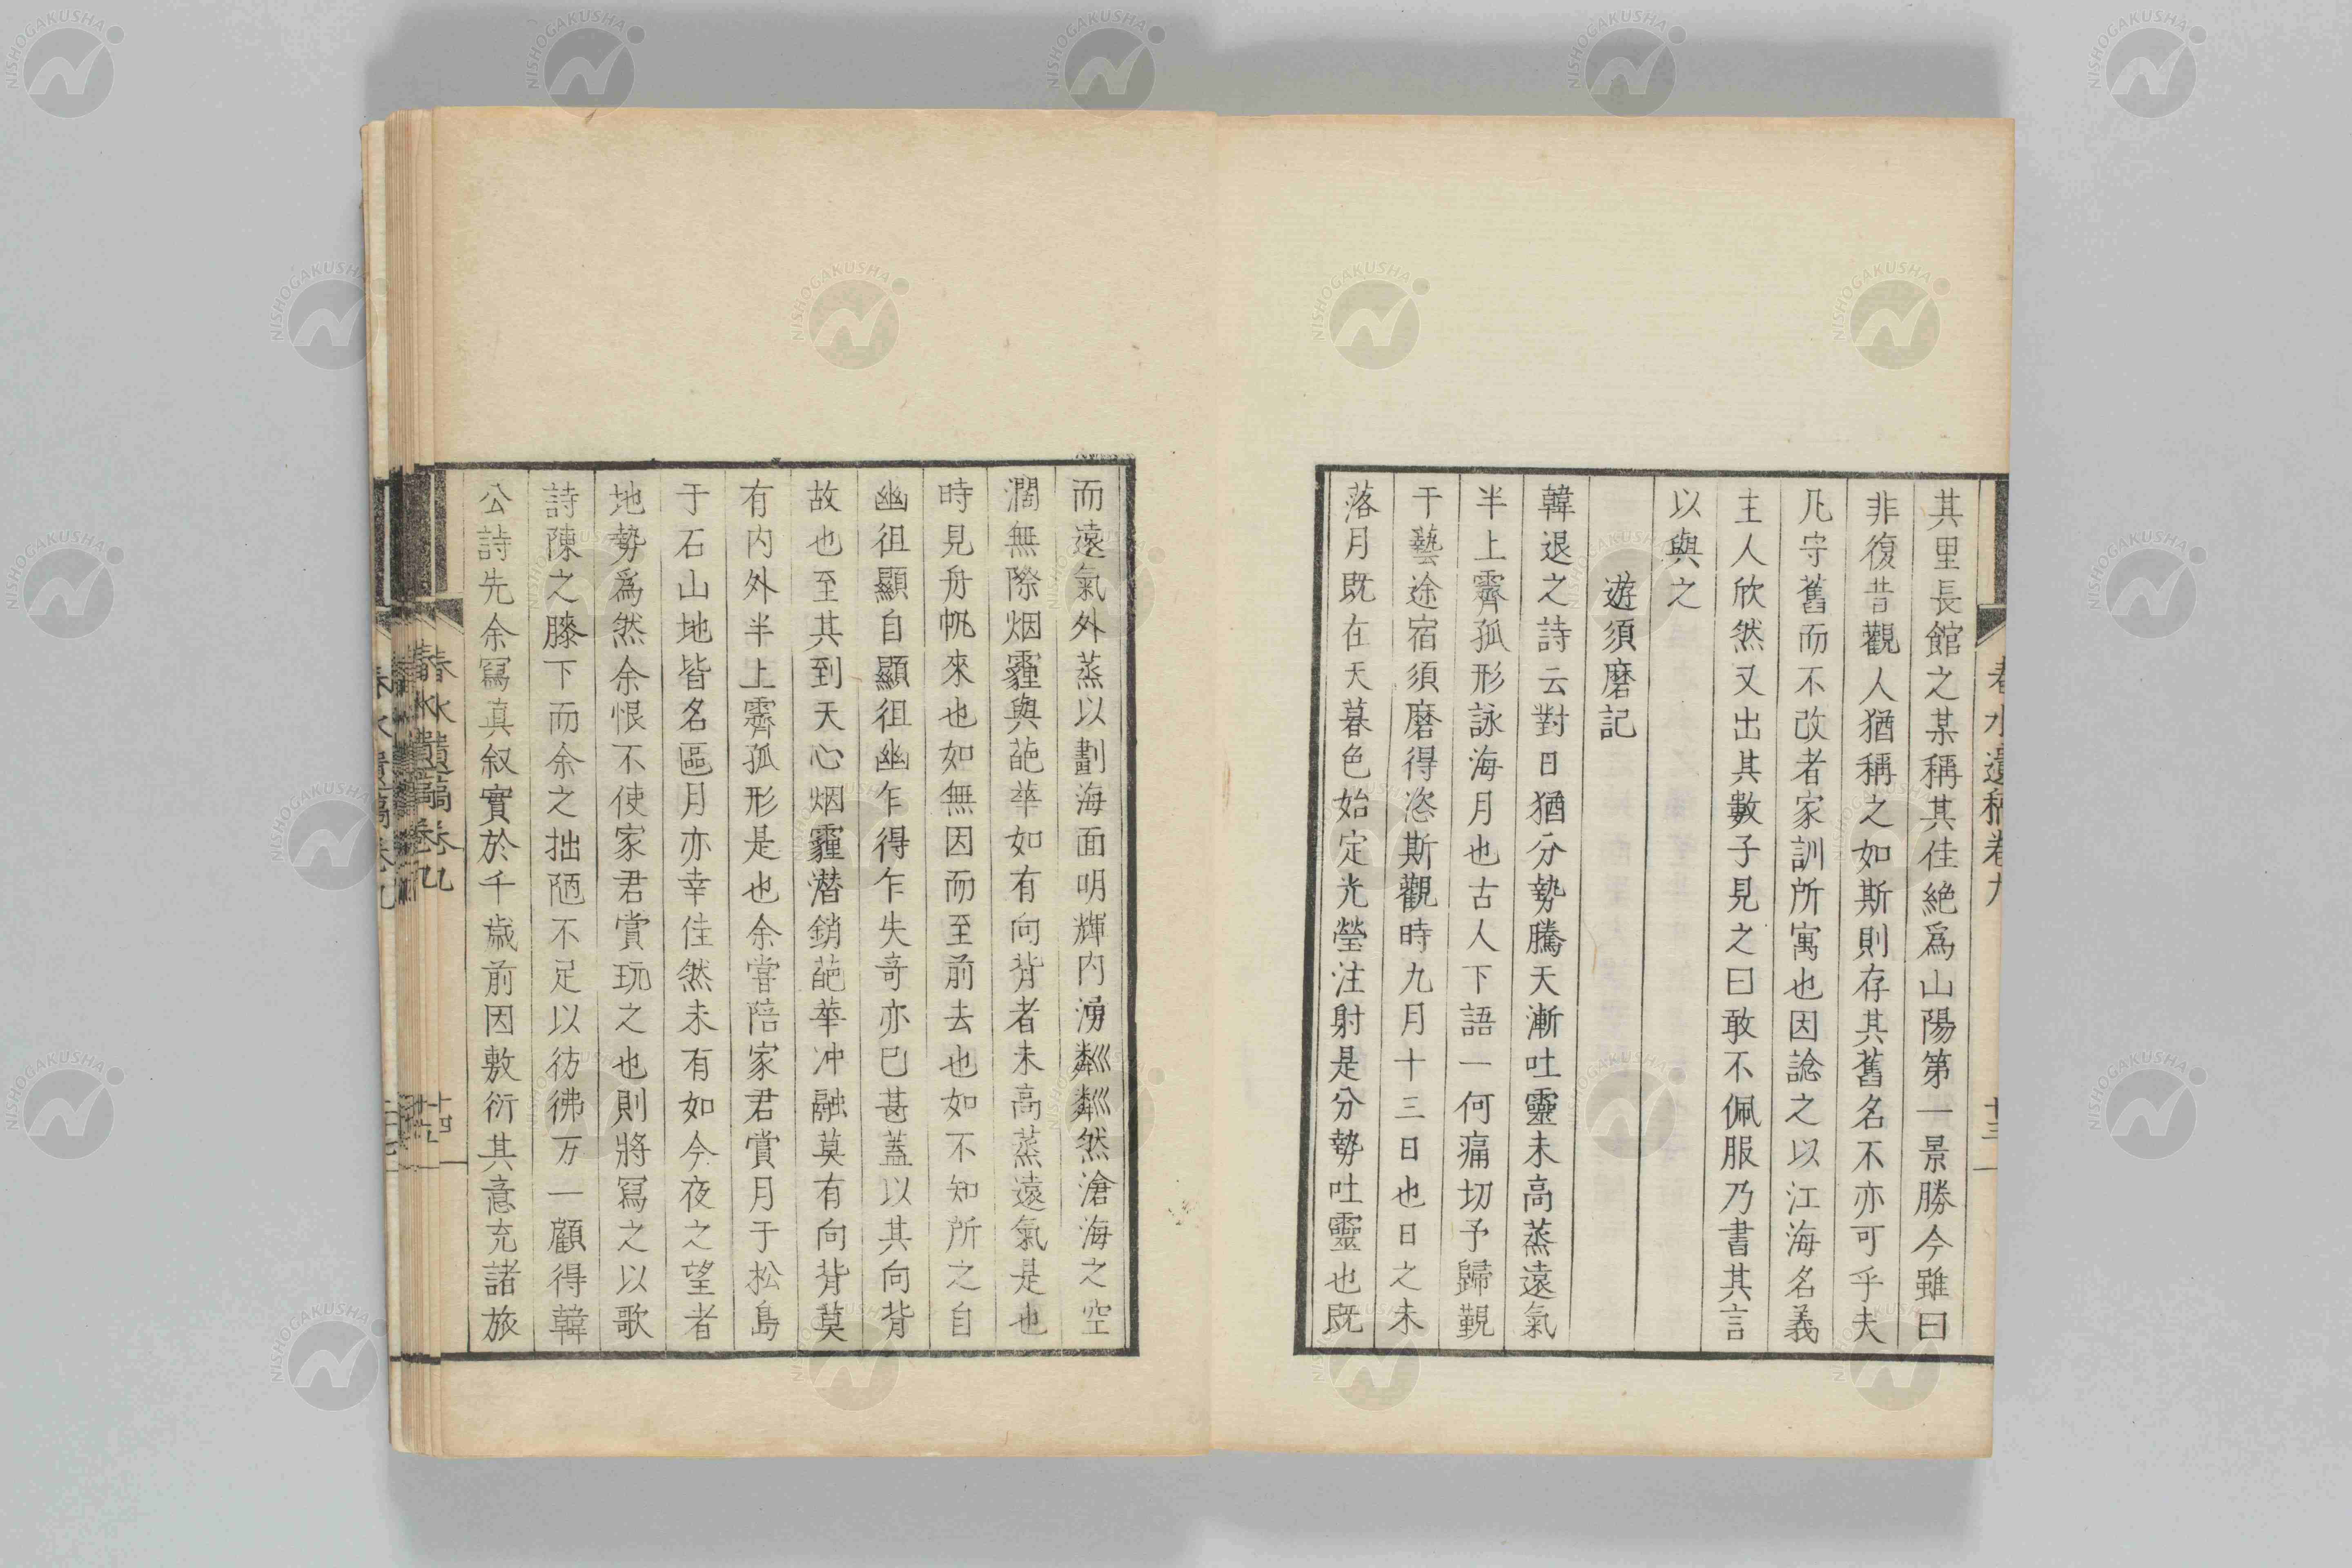 其里長館之某稱其佳絶爲山陽第一景勝今雖曰
非復昔觀人猶稱之如斯則存其舊名不亦可乎夫
凡守舊而不改者家訓所寓也因諗之以江海名義
主人欣然又出其數子見之曰敢不佩服乃書其言
以與之
遊須磨記
韓退之詩云對日猶分勢騰天漸吐靈未高蒸遠氣
半上霽孤形詠海月也古人下語一何痛切予歸覲
于藝途宿須磨得恣斯觀時九月十三日也日之未
落月既在天暮色始定光瑩注射是分勢吐靈也既
而遠氣外蒸以劃海面明輝内湧粼粼然滄海之空
濶無際烟霾與葩華如有向背者未高蒸遠氣是也
時見舟帆來也如無因而至前去也如不知所之自
幽徂顯自顯徂幽乍得乍失奇亦已甚蓋以其向背
故也至其到天心烟霾潜銷葩華冲融莫有向背莫
有内外半上霽孤形是也余嘗陪家君賞月于松島
于石山地皆名區月亦幸佳然未有如今夜之望者
地勢爲然余恨不使家君賞玩之也則將冩之以歌
詩陳之膝下而余之拙陋不足以彷彿万一顧得韓
公詩先余冩真叙實於千歳前因敷衍其意充諸旅
春水遺稿卷九
十三
春水遺稿卷九
NISHOGAKUSHA